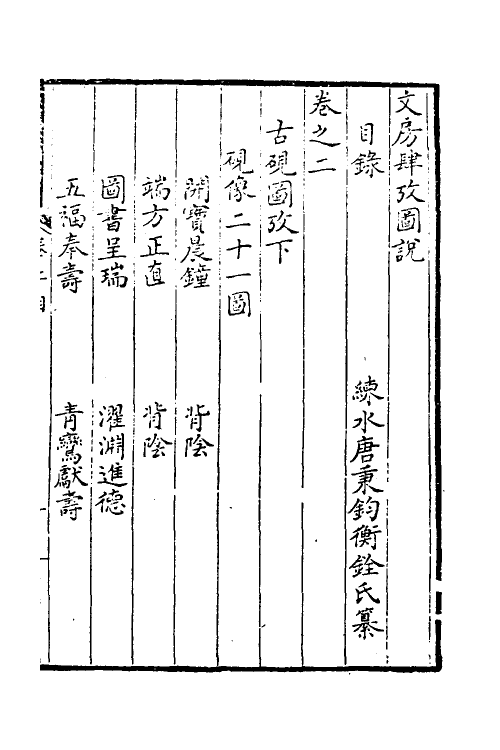 文房肆攷圖說
目錄　練水唐秉鈞衡銓氏纂
卷之二
古硯圖攷下
硯像二十一圖
開寶晨鐘　背陰
端方正直　背陰
圖書呈瑞　濯淵進德
五福奉壽　青鸞獻壽